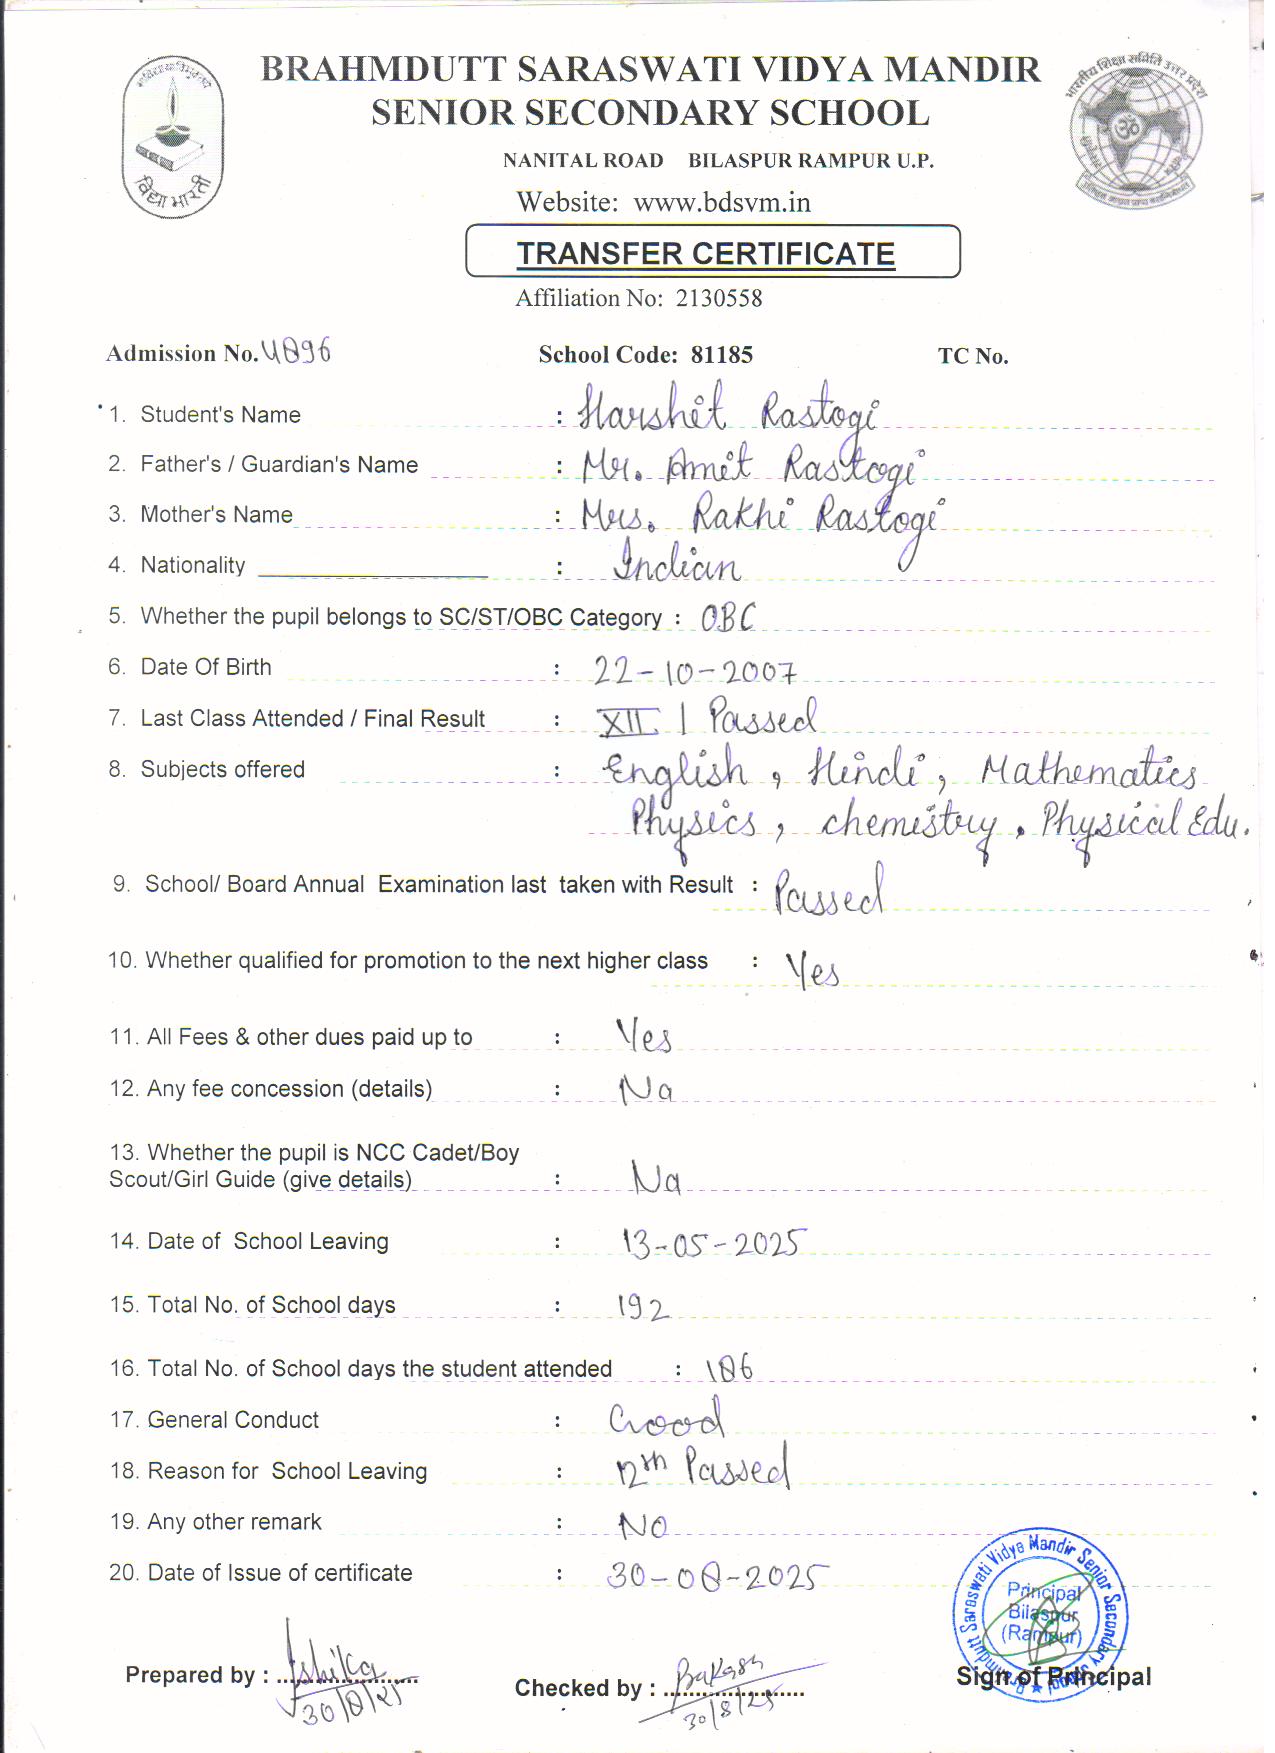 BRAHMDUTT SARASWATI VIDYA MANDIR
SENIOR SECONDARY SCHOOL
NANITAL ROAD BILASPUR RAMPUR U.P.
Website: www.bdsvm.in
विद्या भारती
भारतीय शिक्षा समिति उत्तर प्रदेश
TRANSFER CERTIFICATE
Affiliation No: 2130558
Admission No. 4896 School Code: 81185 TC No.
1. Student's Name : Harshit Rastogi
2. Father's / Guardian's Name : Mr. Amit Rastogi
3. Mother's Name : Mrs. Rakhi Rastogi
4. Nationality : Indian
5. Whether the pupil belongs to SC/ST/OBC Category : OBC
6. Date Of Birth : 22-10-2007
7. Last Class Attended / Final Result : XII | Passed
8. Subjects offered : English, Hindi, Mathematics
Physics, chemistry, Physical Edu.
9. School/ Board Annual Examination last taken with Result : Passed
10. Whether qualified for promotion to the next higher class : Yes
11. All Fees & other dues paid up to : Yes
12. Any fee concession (details) : Na
13. Whether the pupil is NCC Cadet/Boy
Scout/Girl Guide (give details) : Na
14. Date of School Leaving : 13-05-2025
15. Total No. of School days : 192
16. Total No. of School days the student attended : 186
17. General Conduct : Good
18. Reason for School Leaving : 12th Passed
19. Any other remark : NO
20. Date of Issue of certificate : 30-08-2025
Brahmdutt Saraswati Vidya Mandir Senior Secondary School
Principal
Bilaspur
(Rampur)
Prepared by : Ishika
30/8/25
Checked by :
30/8/25
Sign of Principal